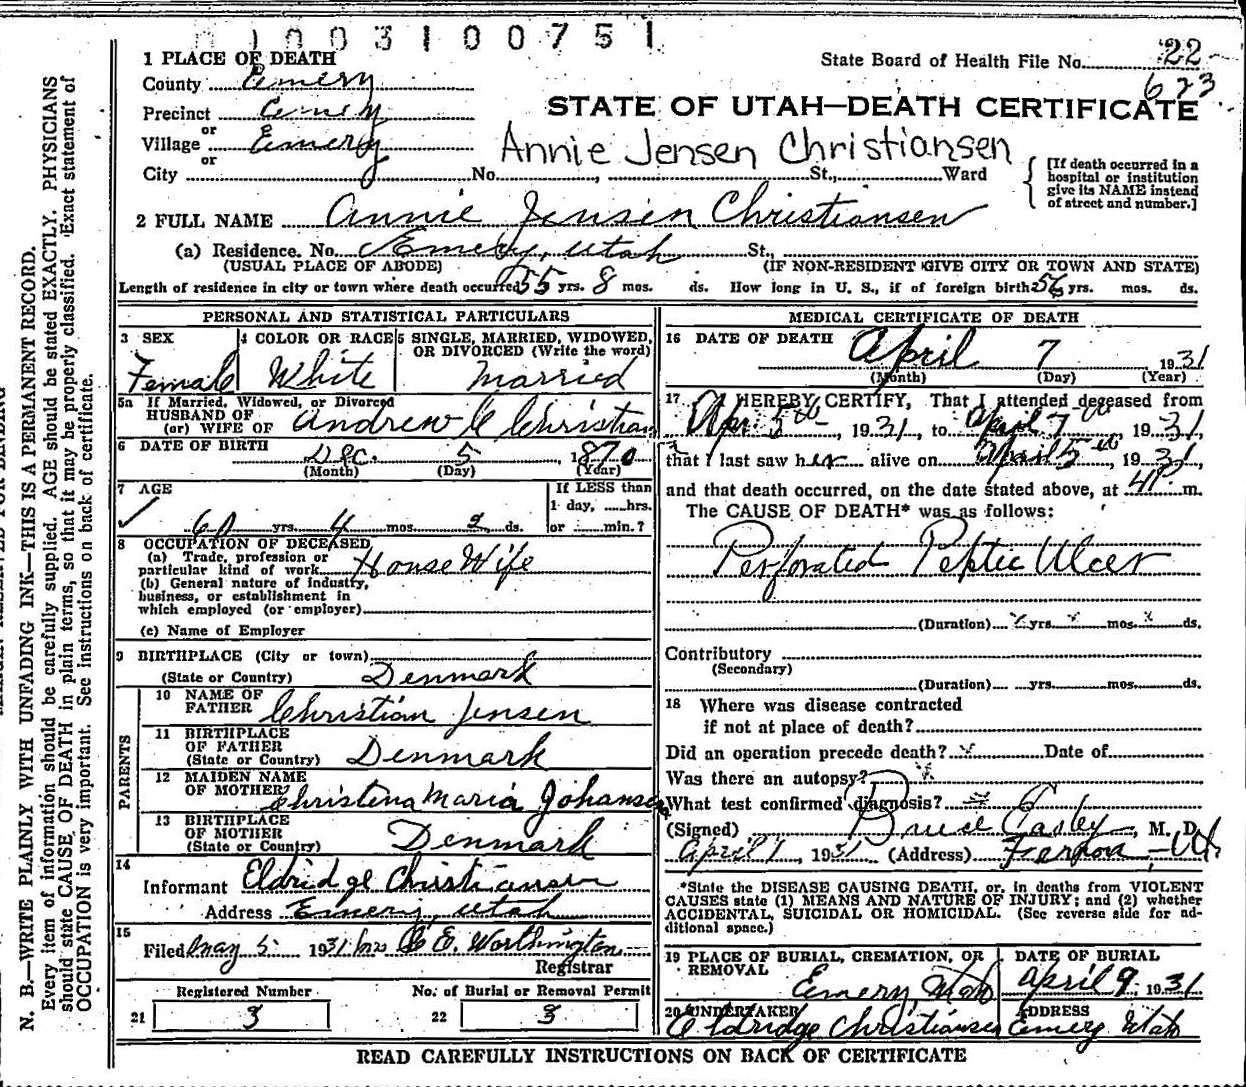 01003100751
1 PLACE OF DEATH
State Board of Health File No. 22
County Emery
623
Precinct Emery
STATE OF UTAH—DEATH CERTIFICATE
or
Village Emery
Annie Jensen Christiansen
or
City No. , St., Ward
[If death occurred in a hospital or institution give its NAME instead of street and number.]
2 FULL NAME Annie Jensen Christiansen
(a) Residence. No. Emery, Utah St.,
(USUAL PLACE OF ABODE) (IF NON-RESIDENT GIVE CITY OR TOWN AND STATE)
Length of residence in city or town where death occurred 55 yrs. 8 mos. ds. How long in U. S., if of foreign birth 56 yrs. mos. ds.
PERSONAL AND STATISTICAL PARTICULARS
3 SEX
Female
4 COLOR OR RACE
White
5 SINGLE, MARRIED, WIDOWED, OR DIVORCED (Write the word)
Married
5a If Married, Widowed, or Divorced
HUSBAND OF
(or) WIFE OF Andrew C Christian
6 DATE OF BIRTH Dec. 5, 1870
(Month) (Day) (Year)
7 AGE
60 yrs. 4 mos. 2 ds.
If LESS than
1 day, hrs.
or min.?
8 OCCUPATION OF DECEASED
(a) Trade, profession or
particular kind of work House Wife
(b) General nature of industry,
business, or establishment in
which employed (or employer)
(c) Name of Employer
9 BIRTHPLACE (City or town)
(State or Country) Denmark
PARENTS
10 NAME OF FATHER Christian Jensen
11 BIRTHPLACE OF FATHER
(State or Country) Denmark
12 MAIDEN NAME OF MOTHER Christena Maria Johansen
13 BIRTHPLACE OF MOTHER
(State or Country) Denmark
14
Informant Eldridge Christiansen
Address Emery, Utah
15
Filed May 5 1931 Mrs C E. Worthington
Registrar
Registered Number No. of Burial or Removal Permit
21 3 22 3
MEDICAL CERTIFICATE OF DEATH
16 DATE OF DEATH April 7 1931
(Month) (Day) (Year)
17 I HEREBY CERTIFY, That I attended deceased from
Apr 5th, 1931, to April 7th, 1931,
that I last saw her alive on April 5th, 1931,
and that death occurred, on the date stated above, at 4P m.
The CAUSE OF DEATH* was as follows:
Perforated Peptic Ulcer
(Duration) yrs. mos. ds.
Contributory
(Secondary)
(Duration) yrs. mos. ds.
18 Where was disease contracted
if not at place of death?
Did an operation precede death? Date of
Was there an autopsy?
What test confirmed diagnosis?
(Signed) Bruce Easley, M. D.
April 1, 1931 (Address) Ferron, Ut
*State the DISEASE CAUSING DEATH, or, in deaths from VIOLENT
CAUSES state (1) MEANS AND NATURE OF INJURY; and (2) whether
ACCIDENTAL, SUICIDAL OR HOMICIDAL. (See reverse side for ad-
ditional space.)
19 PLACE OF BURIAL, CREMATION, OR REMOVAL
Emery, Utah
DATE OF BURIAL
April 9, 1931
20 UNDERTAKER
Eldridge Christiansen
ADDRESS
Emery Utah
READ CAREFULLY INSTRUCTIONS ON BACK OF CERTIFICATE
N. B.—WRITE PLAINLY WITH UNFADING INK—THIS IS A PERMANENT RECORD.
Every item of information should be carefully supplied. AGE should be stated EXACTLY. PHYSICIANS
should state CAUSE OF DEATH in plain terms, so that it may be properly classified. Exact statement of
OCCUPATION is very important. See instructions on back of certificate.